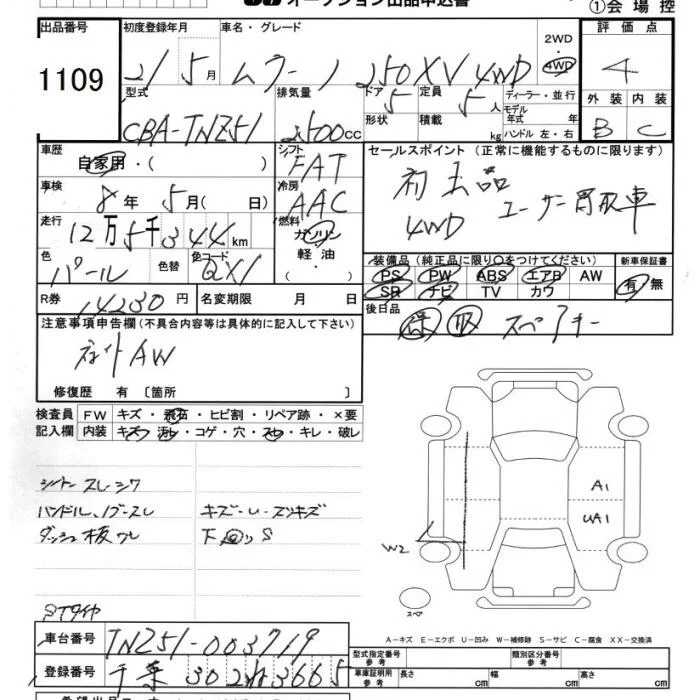 オークション出品申込書
①会場控
出品番号 初度登録年月 車名・グレード 2WD 4WD 評価点
1109 21年 5月 ムラーノ 250XV 4WD 4
型式 排気量 ドア 5 定員 5人 ディーラー・並行 外装 内装
CBA-TNZ51 2500cc 形状 積載 kg モデル年式 年 ハンドル 左・右 B C
車歴 自家用・( ) シフト FAT セールスポイント (正常に機能するものに限ります)
車検 8年 5月( 日) 冷房 AAC 初出品 ユーザー買取車
走行 12万5千344km 燃料 ガソリン 軽油 4WD
色 パール 色替 色コード QX1
装備品 (純正品に限り○をつけてください) 新車保証書
PS PW ABS エアB AW 有・無
SR ナビ TV カワ
R券 14230円 名変期限 月 日
後日品 スペアキー
注意事項申告欄 (不具合内容等は具体的に記入して下さい)
社外AW
修復歴 有 〔箇所 〕
検査員 FW キズ・飛石・ヒビ割・リペア跡・×要
記入欄 内装 キズ・汚れ・コゲ・穴・スレ・キレ・破レ
シートスレ・シワ
ハンドル、ノブスレ
ダッシュ板ワレ
下回りS
A1
UA1
W2
スペア
STタイヤ
A-キズ E-エクボ U-凹み W-補修跡 S-サビ C-腐食 XX-交換済
車台番号 TNZ51-003719
型式指定番号 参考 類別区分番号 参考
登録番号 千葉 302 3665
車庫証明用 参考 長さ cm 幅 cm 高さ cm